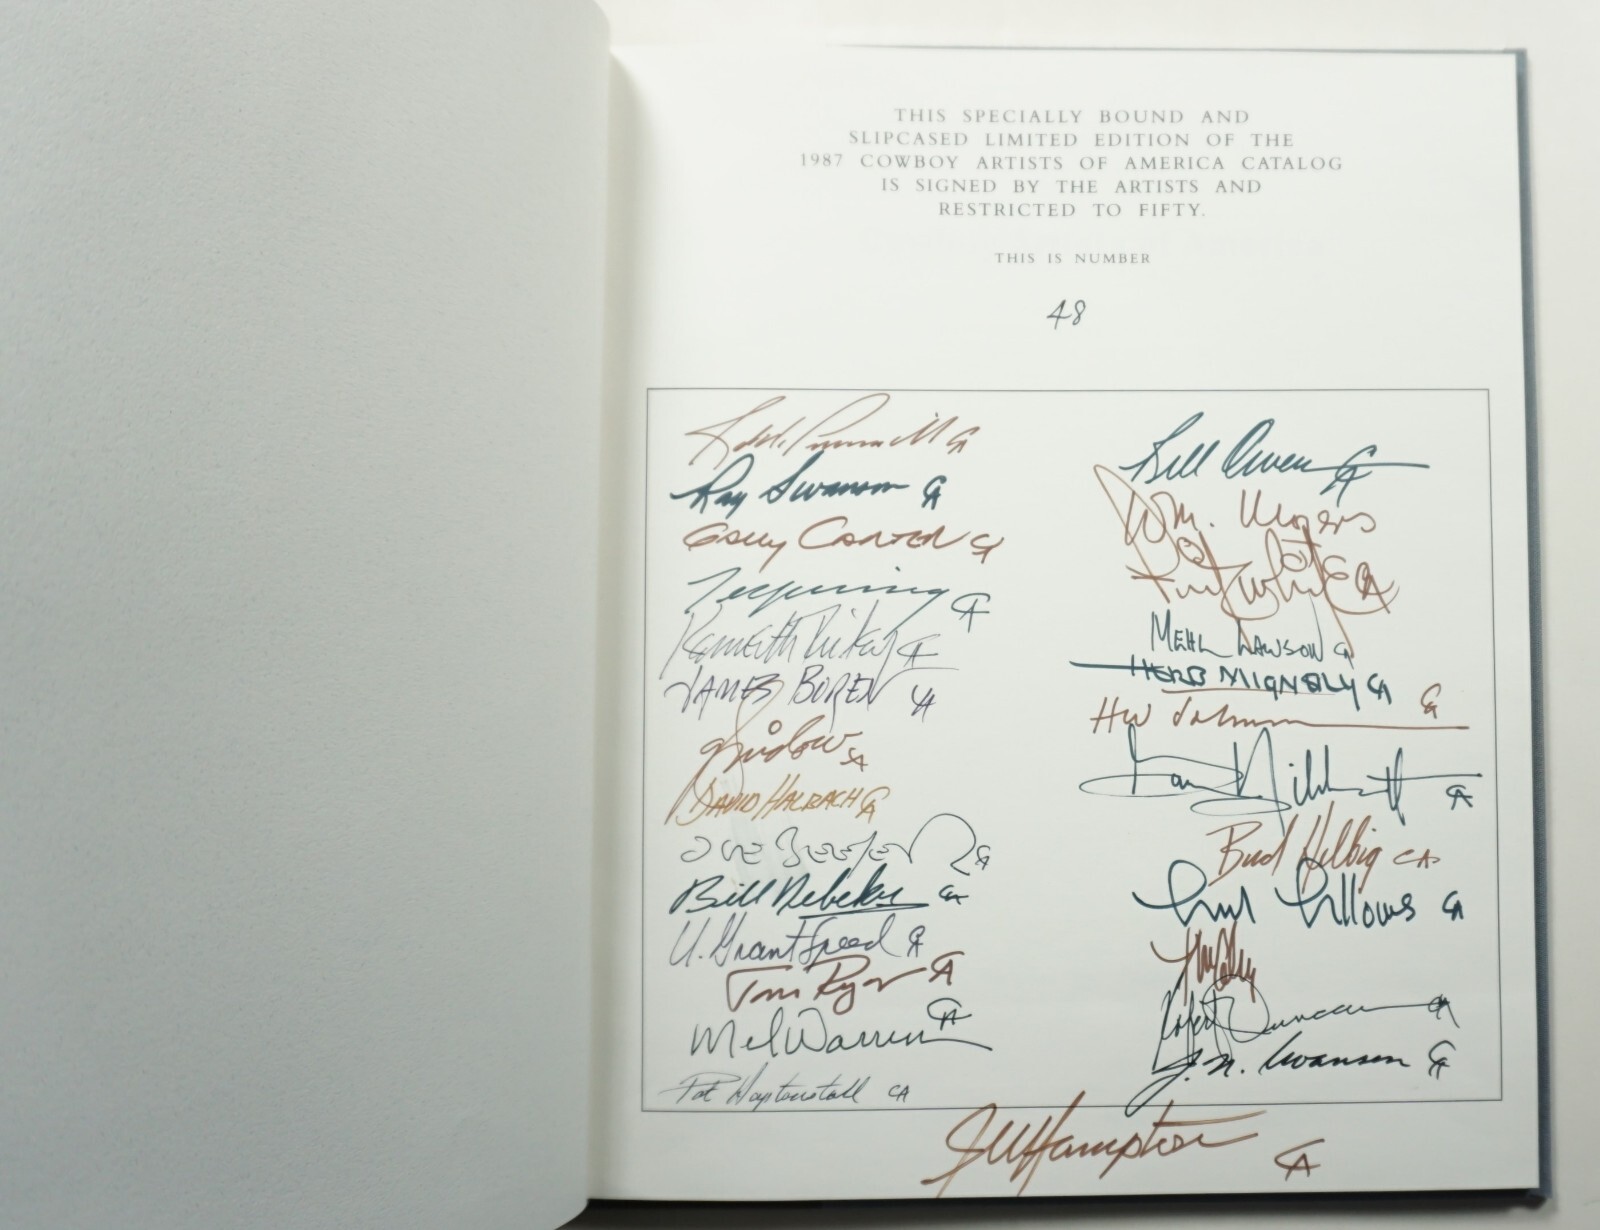 THIS SPECIALLY BOUND AND
SLIPCASED LIMITED EDITION OF THE
1987 COWBOY ARTISTS OF AMERICA CATALOG
IS SIGNED BY THE ARTISTS AND
RESTRICTED TO FIFTY.
THIS IS NUMBER
48
CA
Ray Swanson CA
Gary Carter CA
CA
Kenneth Riley CA
JAMES BOREN CA
CA
DAVID HALBACH CA
JOE BEELER CA
Bill Nebeker CA
U. Grant Speed CA
Tom Ryan CA
Mel Warren CA
Pat Haptonstall CA
Bill Owen CA
Wm. Moyers
Fritz White CA
MEHL LAWSON CA
HERB MIGNERY CA
HW CA
CA
Bud Helbig CA
Fred Fellows CA
Robert Duncan CA
J.N. Swanson CA
JW Hampton CA